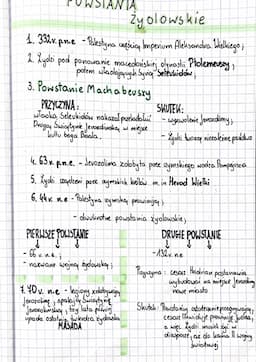 POWSTANIA
Żydowskie
1. 332r. p.n.e - Palestyna częścią Imperium Aleksandra Wielkiego;
2. Żydzi pod panowanie macedońskiej dynastii Ptolemeuszy;
potem władających Syrią Seleukidów;
3. Powstanie Machabeuszy
PRZYCZYNA:
władca Seleukidów nakazał
Drugą Świątynię Jerozolimską, w miejsce
kultu boga Baala.
SKUTEK:
- wyzwolenie Jerozolimy;
- Żydzi tworzą niezależne państwo
4. 63r. p.n.e. - Jerozolima zdobyta przez rzymskiego wodza Pompejusza
5. Żydzi rządzeni przez rzymskich królów m.in Herod Wielki
6. 44r. n.e - Palestyna rzymską prowincją;
- dwukrotne powstania żydowskie;
PIERWSZE POWSTANIE
- 66 r. n.e.;
- nazwane wojną żydowską;
7. 70 r. n.e - legiony zdobywają
Jerozolimę, spalają Świątynię
Jerozolimską; trzy lata później
upada ostatnia twierdza żydowska
MASADA
DRUGIE POWSTANIE
- 132r. n.e
Przyczyna: cesarz Hadrian postanawia
wybudować na miejscu Jerozolimy
nowe miasto
Skutek: Powstańcy ostatecznie przegrywają;
cesarz likwiduje prowincję Judeę,
a więc Żydzi musieli żyć w
diasporze, aż do końca II wojny
światowej